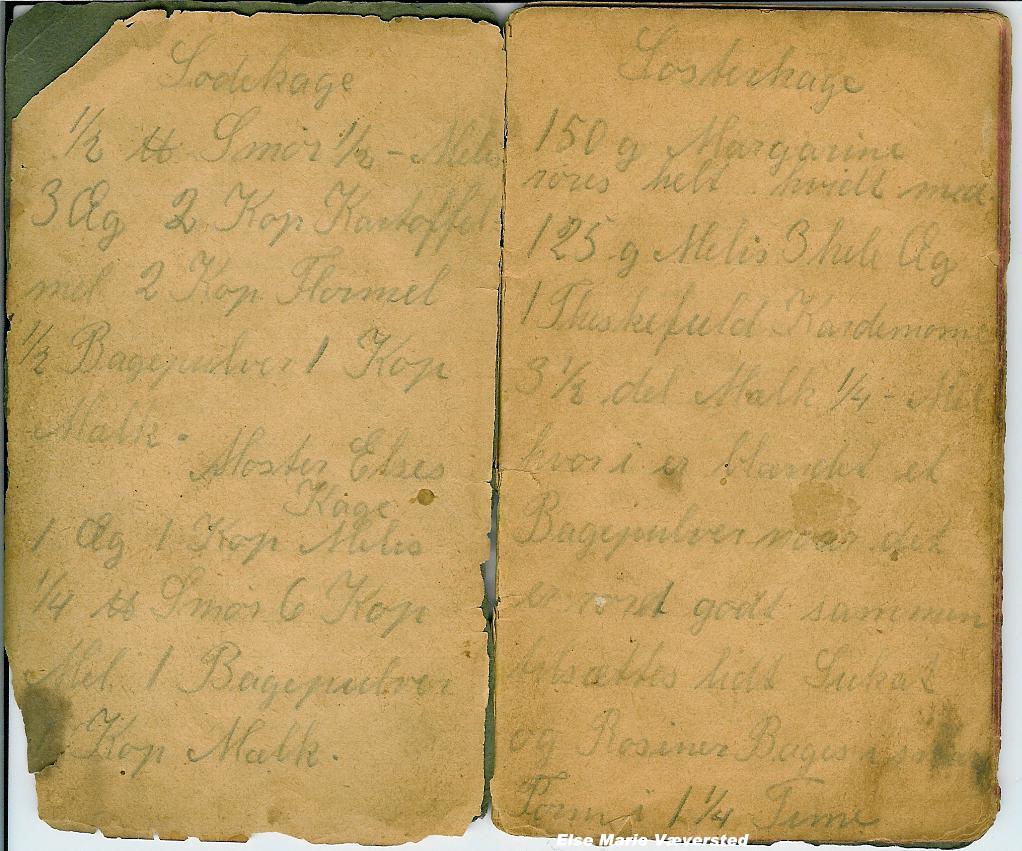 Sodekage
1/2 ℔ Smør 1/2 - Melis
3 Æg 2 Kop Kartoffel
mel 2 Kop Flormel
1/2 Bagepulver 1 Kop
Mælk.
Moster Elses
Kage
1 Æg 1 Kop Melis
1/4 ℔ Smør 6 Kop
Mel 1 Bagepulver
1 Kop Mælk.
Sosterkage
150 g Margarine
røres helt hvidt med
125 g Melis 3 hele Æg
1 Theskefuld Kardemome
3 1/2 del Mælk 1/4 - Mel
hvor i er blandet et
Bagepulver naar det
er rørt godt sammen
tilsættes lidt Sukat
og Rosiner Bages i smurt
Form i 1 1/4 Time
Else Marie Væversted